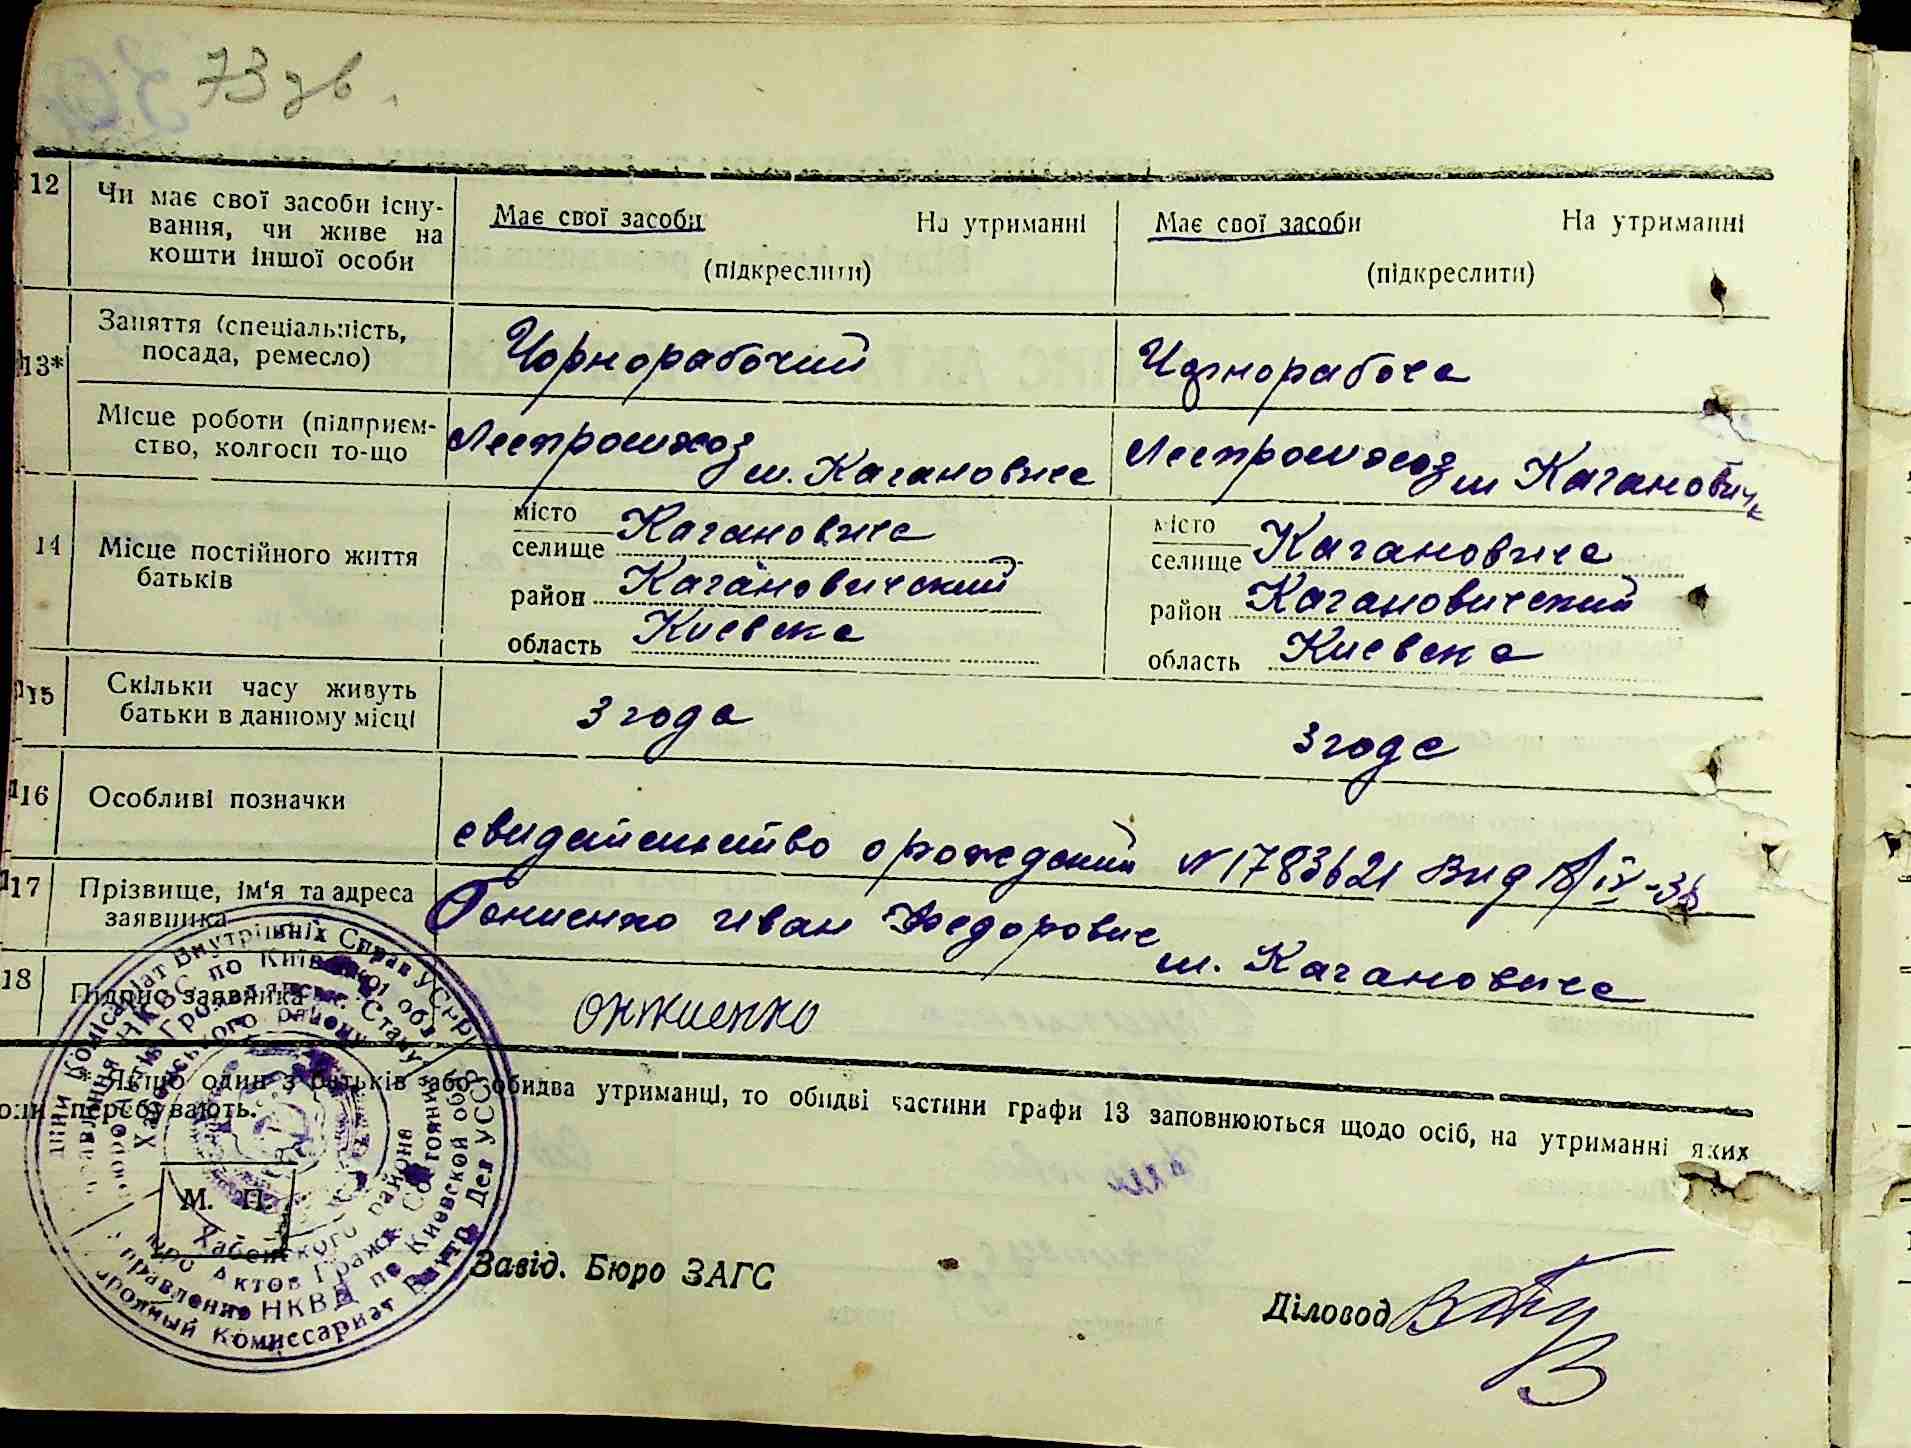 73 зв.
12 Чи має свої засоби існу-
вання, чи живе на
кошти іншої особи
Має свої засоби На утриманні
(підкреслити)
Має свої засоби На утриманні
(підкреслити)
13* Заняття (спеціальність,
посада, ремесло)
Чорнорабочий
Чорнорабоча
Місце роботи (підприєм-
ство, колгосп то-що
Леспромхоз
м. Кагановиче
Леспромхоз
м Кагановиче
14 Місце постійного життя
батьків
місто
селище Кагановиче
район Кагановичский
область Киевска
місто
селище Кагановиче
район Кагановичский
область Киевска
15 Скільки часу живуть
батьки в данному місці
3 года
3 года
16 Особливі позначки
свидетельство о рождений N 1783621 Вид 18/IV-38
17 Прізвище, ім'я та адреса
заявника
Иван Федорович
м. Кагановиче
18 Підпис заявника
* Якщо один з батьків або обидва утриманці, то обидві частини графи 13 заповнюються щодо осіб, на утриманні яких
перебувають.
М. П.
Комісаріат Внутрішніх Справ УСРР
НКВС по Київській обл.
Хабенського району
Хабенского района
Актов Гражд. Состояния
Управление НКВД по Киевской обл.
Народный Комиссариат Внутр. Дел УССР
Завід. Бюро ЗАГС
Діловод